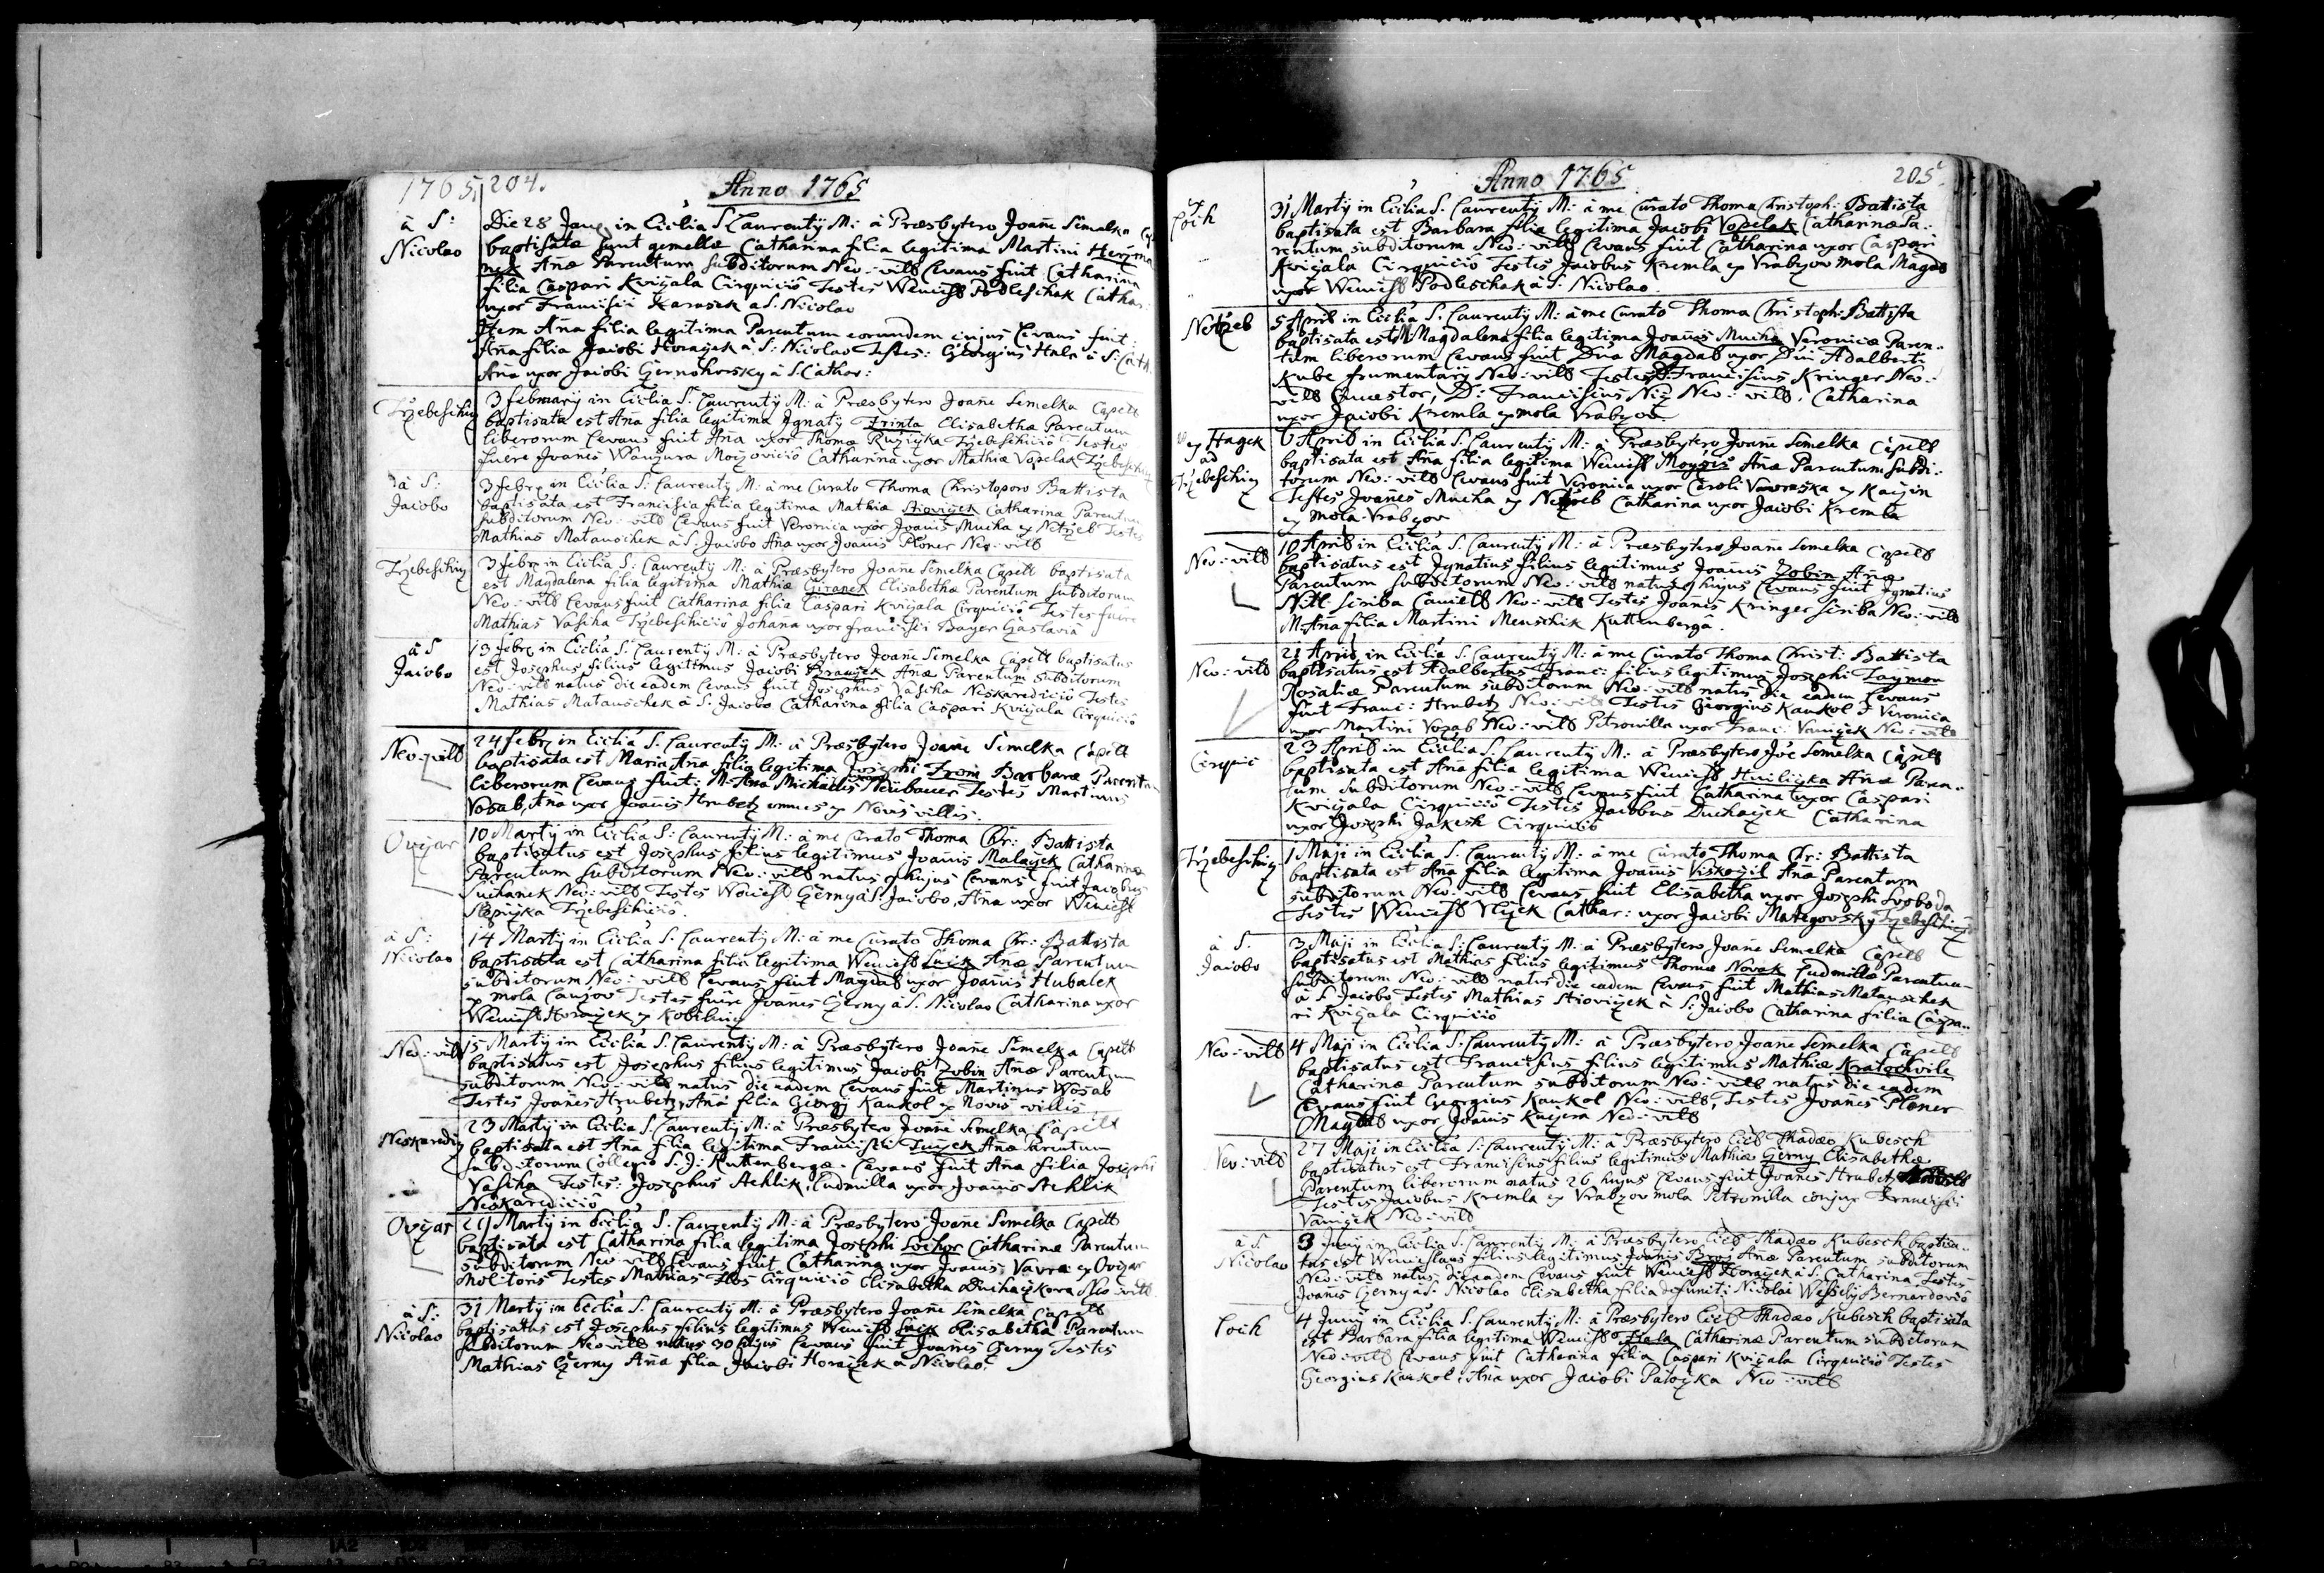 1765, 204.
Anno 1765
à S:
Nicolao
Die 28 in Ecclia S. Laurentÿ M: à Præsbytero Joañe Semelka
baptisatæ sunt gemellæ Catharina filia legitima Martini Herzma
nek Añæ Parentum subditorum Neo: vill Levans fuit Catharina
filia Caspari Kvizala Cirquiciô Testes Wencesl Podleschak Cathar:
uxor Francisci Karasek a S. Nicolao
Item Aña filia legitima Parentum eorundem cujus Levans fuit:
Aña filia Jacobi Horaczek à S: Nicolao Testes: Georgius à S: Cath.
Aña uxor Jacobi Gernohorsky à S. Cathar:
3 februarÿ in Ecclia S. Laurentÿ M: à Præsbytero Joañe Semelka Capell
baptisata est Aña filia legitima Ignatÿ Trinta Elisabethæ Parentum
liberorum Levans fuit Aña uxor Thomæ Ružiczka Trzebeschiciô Testes
fuere Joanes Wanzura Catharina uxor Mathiæ Vopelak
à S:
Jacobo
3 febr in Ecclia S: Laurentÿ M: à me Curato Thoma Christoporo Battista
baptisata est Francisca filia legitima Mathiæ Stioviczek Catharinæ Parentum
subditorum Neo: vill Levans fuit Veronica uxor Joanis Mucha ex Netrzeb Testes
Mathias Matauschek à S: Jacobo Aña uxor Joanis Ploner Neo: vill
3 febr in Ecclia S: Laurentÿ M: à Præsbytero Joañe Semelka Capell baptisata
est Magdalena filia legitima Mathiæ Giranek Elisabethæ Parentum subditorum
Neo: vill Levans fuit Catharina filia Caspari Kvizala Cirquiciô Testes fuere
Mathias Vascha Trzebeschiciô Johaña uxor francisci Bayer Czaslavia
à S
Jacobo
13 febr in Ecclia S: Laurentÿ M: à Præsbytero Joañe Semelka Capell baptisatus
est Josephus filius legitimus Jacobi Añæ Parentum subditorum
Neo: vill natus die eadem Levans fuit Josephus Vascha Neskarediciô Testes
Mathias Matauschek à S. Jacobo Catharina filia Caspari Kvizala Cirquiciô
Neo: vill
24 febr in Ecclia S: Laurentÿ M: à Præsbytero Joañe Semelka Capell
baptisata est Maria Aña filia legitima Josephi From Barbaræ Parentum
liberorum Levans fuit: M: Aña Michaelis Neubauer Testes Martinus
Vosab, Aña uxor Joanis Hrubetz omnes ex Novis villis.
Ovczar
10 Martÿ in Ecclia S: Laurentÿ M: à me Curato Thoma Chr: Battista
baptisatus est Josephus filius legitimus Joanis Malaczek Catharinæ
Parentum subditorum Neo: vill natus 9 hujus Levans fuit Jacobus
Suchanek Neo: vill Testes Wencesl Gerny à S: Jacobo, Aña uxor Wencesl
Trzebeschiciô.
à S:
Nicolao
14 Martÿ in Ecclia S: Laurentÿ M: à me Curato Thoma Chr: Battista
baptisata est Catharina filia legitima Wencesl Añæ Parentum
subditorum Neo: vill Levans fuit Magdal uxor Joanis Hubalek
ex mola Testes fuire Joanes Gerny à S. Nicolao Catharina uxor
Wencesl Horaczek ex
Neo: vill
15 Martÿ in Ecclia S: Laurentÿ M: à Præsbytero Joañe Semelka Capell
baptisatus est Josephus filius legitimus Jacobi Zobin Añæ Parentum
subditorum Neo: vill natus die eadem Levans fuit Martinus Wosab
Testes Joanes Hrubetz, Aña filia Georgÿ Kaukol ex Novis villis
23 Martÿ in Ecclia S: Laurentÿ M: à Præsbytero Joañe Semelka Capell
baptisata est Aña filia legitima Francisci Añæ Parentum
subditorum Collegio S: J: Kuttenbergæ. Levans fuit Aña filia Josephi
Vascha Testes: Josephus Achlik, Ludmilla uxor Joanis Achlik
Neskarediciô
Ovczar
Martÿ in Ecclia S: Laurentÿ M: à Præsbytero Joañe Semelka Capell
baptisata est Catharina filia legitima Josephi Lochor Catharinæ Parentum
subditorum Neo vill Levans fuit Catharina uxor Joanis Vavra ex Ovczar
molitoris Testes Mathias Cirquiciô Elisabetha Neo: vill
à S:
Nicolao
31 Martÿ in Ecclia S: Laurentÿ M: à Præsbytero Joañe Semelka Capell
baptisatus est Josephus filius legitimus Wencesl Elisabethæ Parentum
subditorum Neo vill natus 30 hujus Levans fuit Joannes Gerny Testes
Mathias Gerny Aña filia Jacobi Horaczek à Nicolao.
Anno 1765
205.
31 Martÿ in Ecclia S: Laurentÿ M: à me Curato Thoma Christoph: Battista
baptisata est Barbara filia legitima Jacobi Vopelak Catharinæ Pa:
rentum subditorum Neo: vill Levans fuit Catharina uxor Caspari
Kvizala Cirquiciô Testes Jacobus Kremla ex Vrabzov mola Magdal
uxor Wencesl Podleschak à S: Nicolao.
Netrzeb
5 April in Ecclia S: Laurentÿ M: à me Curato Thoma Christoph: Battista
baptisata est M Magdalena filia legitima Joanis Mucha Veronicæ Paren:
tum liberorum Levans fuit Dna Magdal uxor Dni Adalberti
Kube frumentarÿ Neo: vill Testes D: Franciscus Kringer Neo:
vill D: Franciscus Neo: vill, Catharina
uxor Jacobi Kremla ex mola Vrabzov
ex Hagek
ad
6 April in Ecclia S: Laurentÿ M: à Præsbytero Joañe Semelka Capell
baptisata est Aña filia legitima Wencesl Moyzis Añæ Parentum subdi:
torum Neo: vill Levans fuit Veronica uxor Caroli ex Kaczin
Testes Joanes Mucha ex Netrzeb Catharina uxor Jacobi Kremla
ex mola Vrabzov
Neo: vill
10 April in Ecclia S: Laurentÿ M: à Præsbytero Joañe Semelka Capell
baptisatus est Ignatius filius legitimus Joanis Zobin Añæ
Parentum subditorum Neo: vill natus 9 hujus Levans fuit Ignatius
Scriba Neo: vill Testes Joanes Kringer Scriba Neo: vill
M: Aña filia Martini Menschik Kuttenbergâ.
Neo: vill
21 April in Ecclia S: Laurentÿ M: à me Curato Thoma Christ: Battista
baptisatus est Adalbertus Franc: filius legitimus Josephi Zaymon
Rosaliæ Parentum subditorum Neo: vill natus die eadem Levans
fuit Franc: Hrubetz Neo: vill Testes Georgius Kaukol Veronica
uxor Martini Vozab Neo: vill Petronilla uxor Franc: Vaniczek Neo: vill
Cirquic
23 April in Ecclia S: Laurentÿ M: à Præsbytero Joe Semelka Capell
baptisata est Aña filia legitima Wencesl Añæ Paren:
tum subditorum Neo: vill Levans fuit Catharina uxor Caspari
Kvizala Cirquiciô Testes Jacobus Duchaczek Catharina
uxor Josephi Jakesh Cirquiciô
1 Maji in Ecclia S: Laurentÿ M: à me Curato Thoma Chr: Battista
baptisata est Aña filia legitima Joanis Viskoczil Añæ Parentum
subditorum Neo: vill Levans fuit Elisabetha uxor Josephi Svoboda
Testes Wencesl Cathar: uxor Jacobi
à S:
Jacobo
3 Maji in Ecclia S: Laurentÿ M: à Præsbytero Joañe Semelka Capell
baptisatus est Mathias filius legitimus Thomæ Novak Ludmillæ Parentum
subditorum Neo: vill natus die eadem Levans fuit Mathias Matauschek
à S. Jacobo Testes Mathias Stioviczek à S: Jacobo Catharina filia Caspa:
ri Kvizala Cirquiciô
Neo: vill
4 Maji in Ecclia S: Laurentÿ M: à Præsbytero Joañe Semelka Capell
baptisatus est Franciscus filius legitimus Mathiæ Kratochvile
Catharinæ Parentum subditorum Neo: vill natus die eadem
Levans fuit Georgius Kaukol Neo: vill, Testes Joanes Ploner
Magdal uxor Joanis Neo: vill
Neo: vill
27 Maji in Ecclia S: Laurentÿ M: à Præsbytero Thadæo Kubesch
baptisatus est Franciscus filius legitimus Mathiæ Gerny Elisabethæ
Parentum liberorum natus 26 hujus Levans fuit Joanes Hrubetz
Testes Jacobus Kremla ex Vrabzov mola Petronilla conjux Francisci
Vaniczek Neo: vill
à S.
Nicolao
3 Junÿ in Ecclia S: Laurentÿ M: à Præsbytero Thadæo Kubesch baptisa:
tus est Wenceslaus filius legitimus Joanis Añæ Parentum subditorum
Neo: vill natus die eadem Levans fuit Wencesl Horaczek à S. Catharina Testes
Joanes Gerny à S: Nicolao Elisabetha filia defuncti Nicolai Wesselÿ Bernardoviô
4 Junÿ in Ecclia S. Laurentÿ M: à Præsbytero Thadæo Kubesch baptisata
est Barbara filia legitima Wencesl Catharinæ Parentum subditorum
Neo: vill Levans fuit Catharina filia Caspari Kvizala Cirquiciô Testes
Georgius Kaukol, Aña uxor Jacobi Patoczka Neo: vill